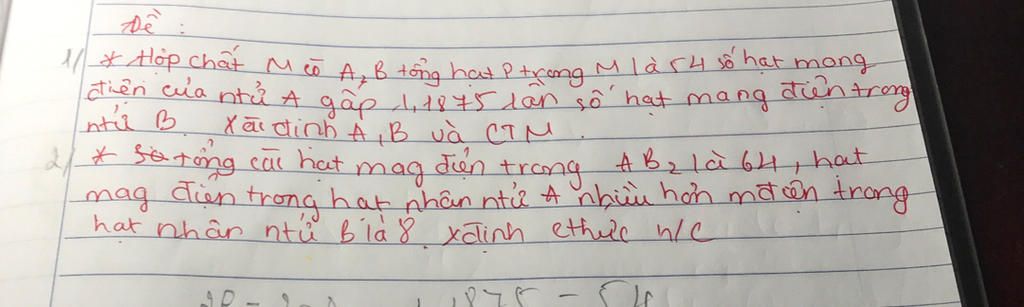 Đề :
1/ * Hợp chất M có A₂B tổng hạt P trong M là 54 số hạt mang
điện của ntử A gấp 1,1875 lần số hạt mang điện trong
ntử B. Xác định A, B và CTM.
2/ * tổng các hạt mag điện trong AB₂ là 64, hạt
mag điện trong hạt nhân ntử A nhiều hơn mđiện trong
hạt nhân ntử B là 8. xđịnh cthức h/c
1,1875 = 54